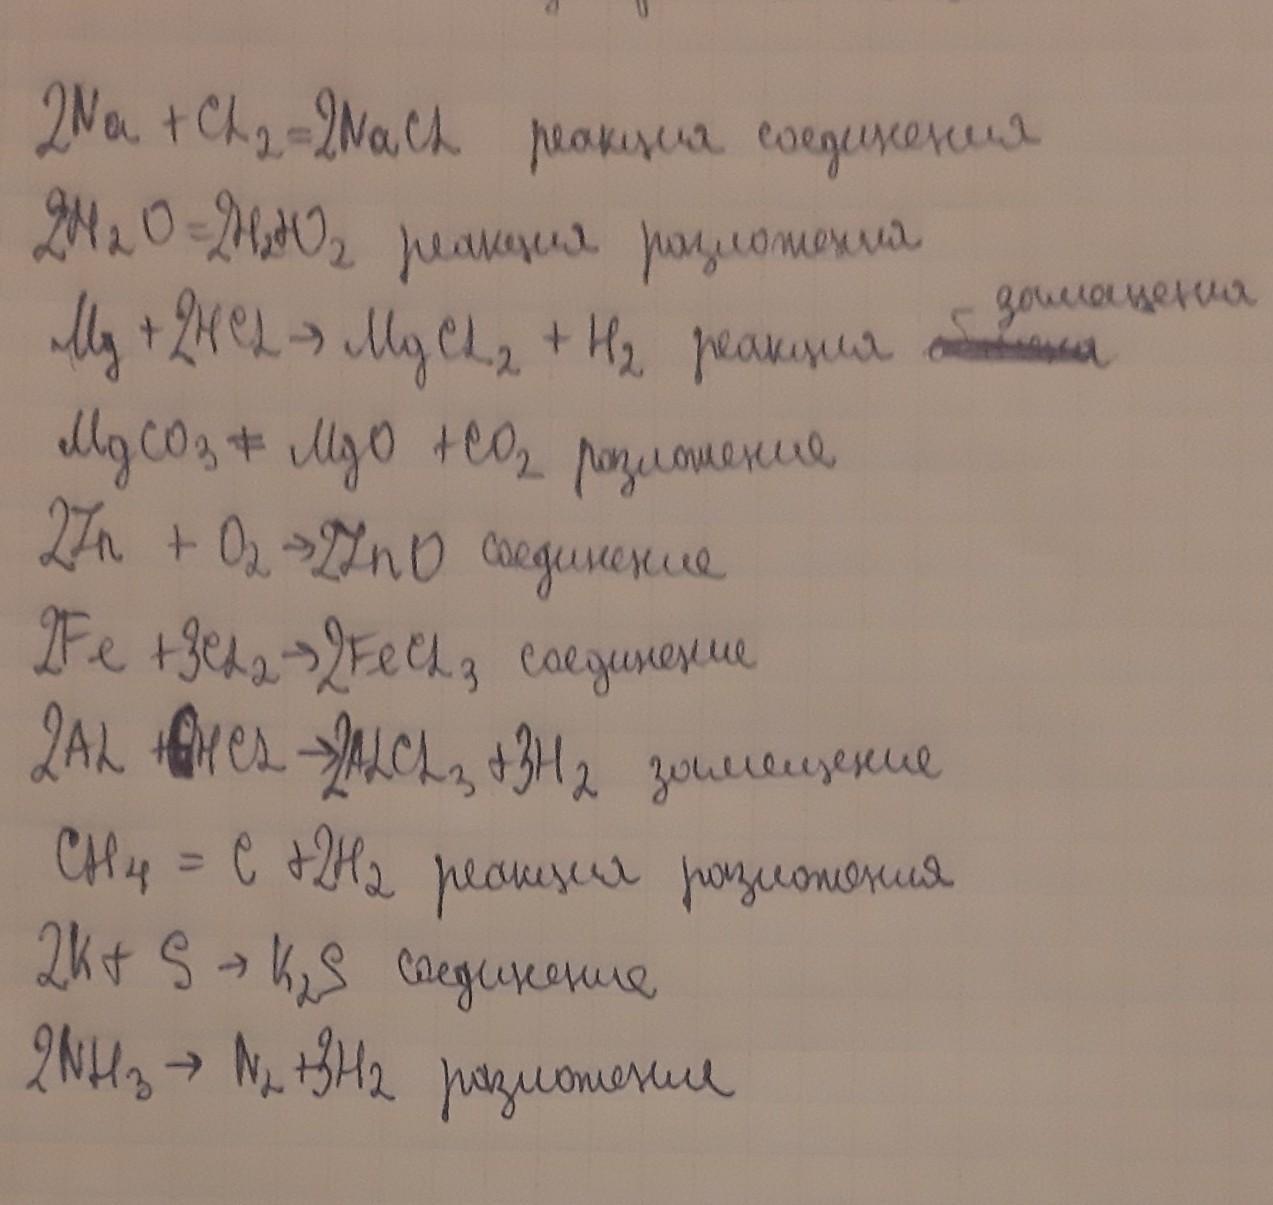 2Na + Cl₂ = 2NaCl реакция соединения
2H₂O = 2H₂+O₂ реакция разложения
замещения
Mg + 2HCl → MgCl₂ + H₂ реакция
MgCO₃ = MgO + CO₂ разложение
2Zn + O₂ → 2ZnO соединение
2Fe + 3Cl₂ → 2FeCl₃ соединение
2Al + 6HCl → 2AlCl₃ + 3H₂ замещение
CH₄ = C + 2H₂ реакция разложения
2K + S → K₂S соединение
2NH₃ → N₂ + 3H₂ разложение